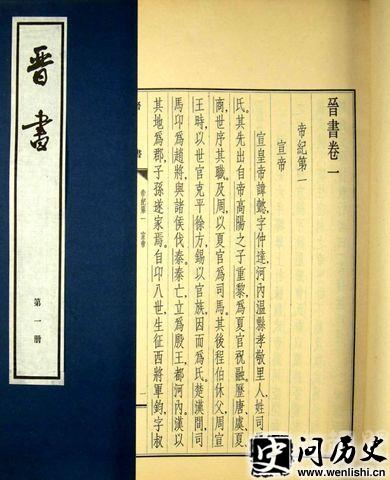 晉書
第一册
晉書卷一
帝紀第一
宣帝
宣皇帝諱懿字仲達河內溫縣孝敬里人姓司
氏其先出自帝高陽之子重黎爲夏官祝融歷唐虞夏
商世序其職及周以夏官爲司馬其後程伯休父周宣
王時以世官克平徐方錫以官族因而爲氏楚漢間司
馬卬爲趙將與諸侯伐秦秦亡立爲殷王都河內漢以
其地爲郡子孫遂家焉自卬八世生征西將軍鈞字叔
帝紀第一 宣帝
一
史问历史
www.wenlishi.cn